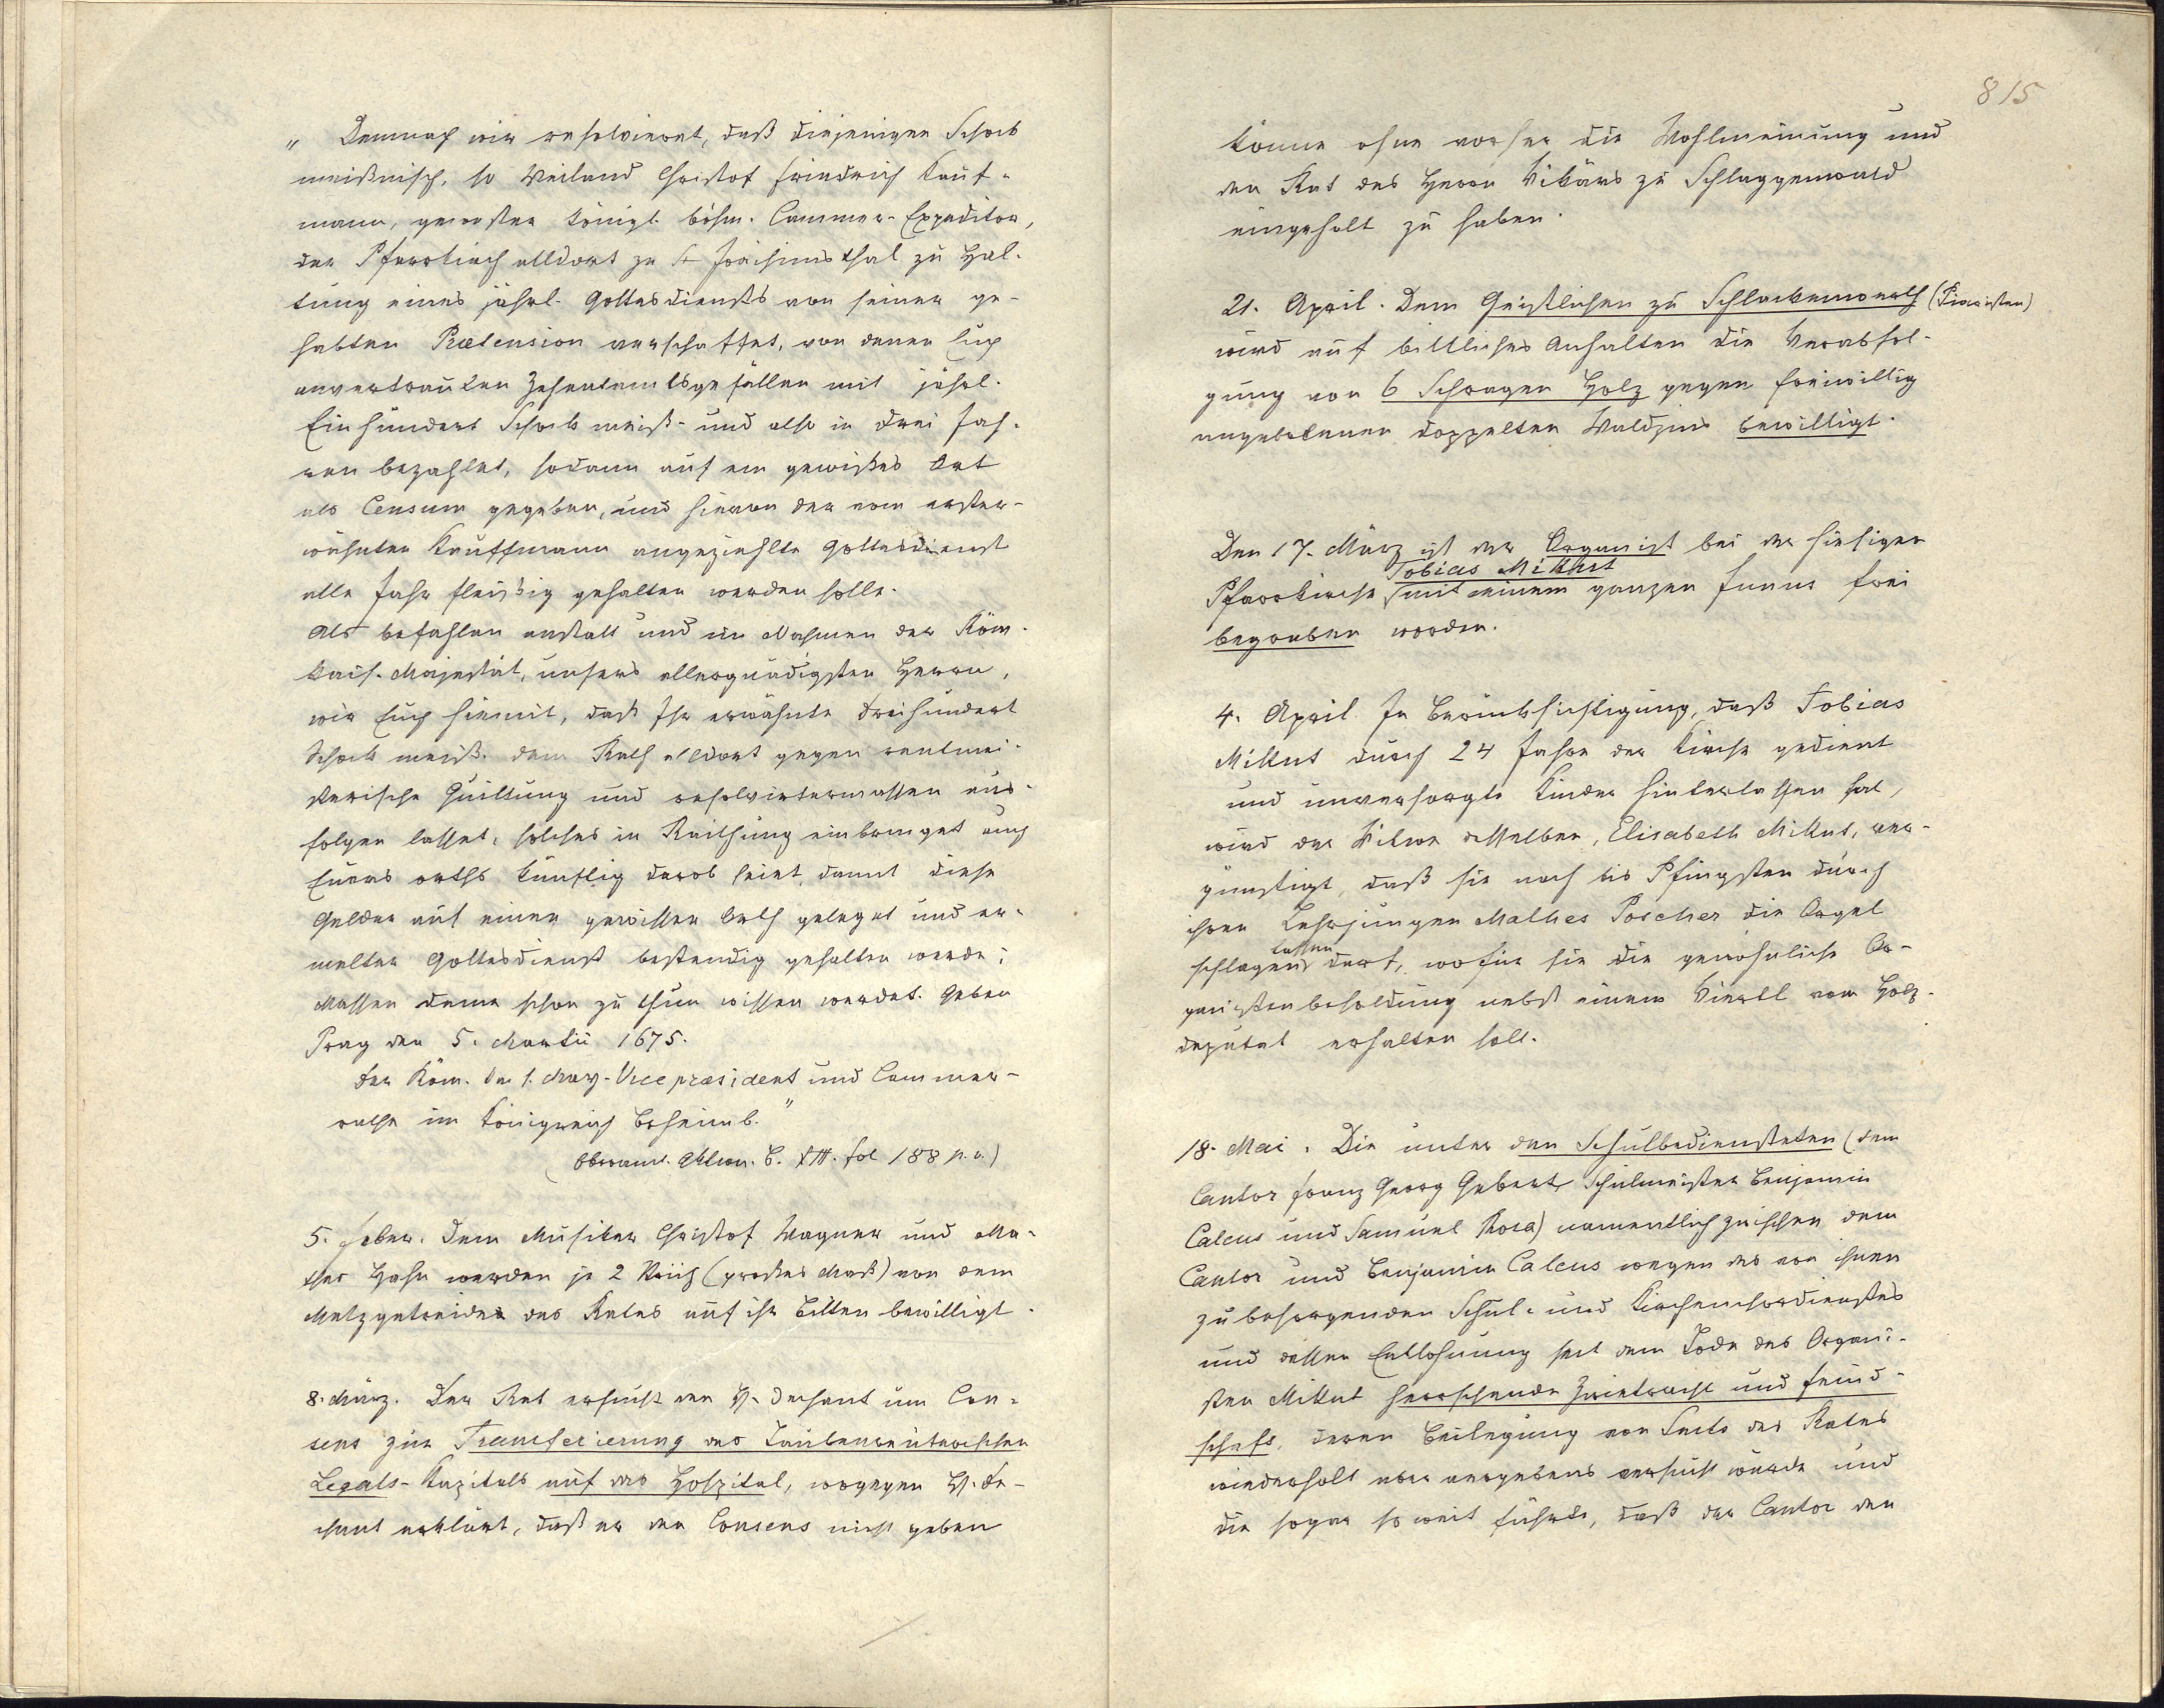 „ Demnach wir resolvieret, daß diejenigen Schock
meißnisch, so Weiland Christof Friedrich Kauf-
mann, gewester königl. böhm. Cammer-Expeditor,
der Pfarrkirch alldort zu St Joachimsthal zu Hal-
tung eines jährl. Gottesdiensts von seiner ge-
habten Prætension verschaffet, von denen Euch
anvertrauten Zehentamtsgefällen mit jährl.
Einhundert Schock meiß- und also in drei Jah-
ren bezahlet, sodann auf ein gewißes Ort
als Censum gegeben, und hievon der vom erster-
wähnten Kauffmann angeziehlte Gottesdienst
alle Jahr fleißig gehalten werden solle.
Als befahlen anstatt und im Nahmen der Röm.
kais. Majestät, unsers allergnädigsten Herrn,
wir Euch hiemit, daß Ihr erwähnte dreihundert
Schock meiß. dem Rath alldort gegen rentmei-
sterische Quittung und resolvirtermassen aus-
folgen lasset, solches in Raithung einbringet auch
Euers orths künftig darob seiet, damit diese
Gelder auf einen gewissen Orth geleget und er-
melter Gottesdienst bestendig gehalten werde;
Massen deme schon zu thun wissen werdet. Geben
Prag den 5. Martii 1675.
Der Röm. kai s. May. Vice præsident und Cammer-
rathe im Königreich Beheimb."
(Oberamt. Aktion. B. XIII. fol 188 p. v.)
5. Feber. Dem Musiker Christof Wagner und Ma-
thes Hahn werden je 2 Strich (großes Maß) von dem
Metzgetreide des Rates auf ihr Bitten bewilligt.
8. März. Der Rat ersucht den H. Dechant um Con-
sens zur Transferierung des Taubenreuterischen
Legats-Kapitals auf das Hospital, wogegen H. De-
chant erklärt, daß er den Consens nicht geben
815
könne ohne vorher die Wohlmeinung und
den Rat des Herrn Vikärs zu Schlaggenwald
eingeholt zu haben.
21. April. Dem Geistlichen zu Schlackenwerth (Piaristen)
wird auf bittliches Anhalten die Verabfol-
gung von 6 Schragen Holz gegen freiwillig
angebotenen doppelten Waldzins bewilligt.
Den 17. März ist der Organist bei der hiesigen
Tobias Mikut
Pfarrkirche mit einem ganzen Funus frei
begraben worden.
4. April. In Berücksichtigung, daß Tobias
Mikut durch 24 Jahre der Kirche gedient
und unversorgte Kinder hinterlassen hat,
wird der Witwe desselben, Elisabeth Mikut, ver-
günstigt, daß sie noch bis Pfingsten durch
ihren Lehrjungen Mathes Poscher die Orgel
lassen
schlagen darf, wofür sie die gewöhnliche Or-
ganistenbesoldung nebst einem Viertl vom Holz-
deputat erhalten soll.
18. Mai. Die unter den Schulbediensteten (dem
Cantor Franz Georg Gebert, Schulmeister Benjamin
Calcus und Samuel Roca) namentlich zwischen dem
Cantor und Benjamin Calcus wegen des von ihnen
zu besorgenden Schul- und Kirchenchordienstes
und dessen Entlohnung seit dem Tode des Organi-
sten Mikut herrschende Zwietracht und Feind-
schaft, deren Beilegung von Seite des Rates
wiederholt aber vergebens versucht wurde und
die sogar so weit führte, daß der Cantor den